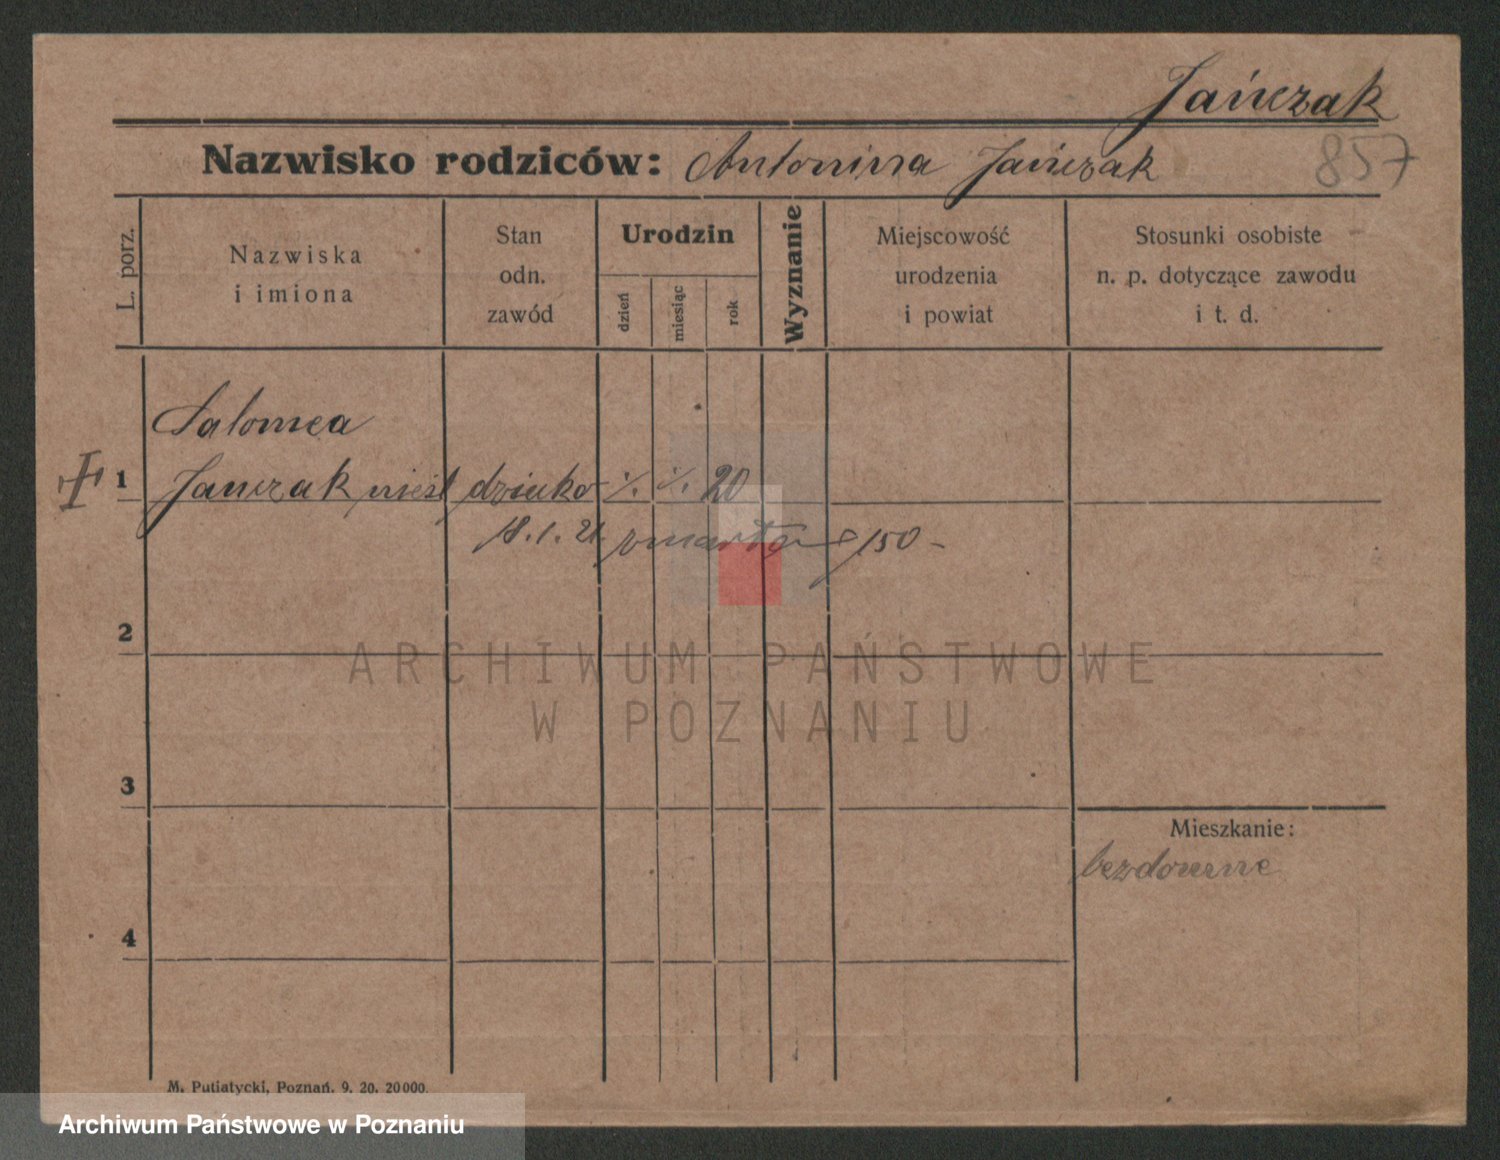 Jańczak
Nazwisko rodziców: Antonina Jańczak
857
L. porz.
Nazwiska
i imiona
Stan
odn.
zawód
Urodzin
dzień
miesiąc
rok
Wyznanie
Miejscowość
urodzenia
i powiat
Stosunki osobiste
n. p. dotyczące zawodu
i t. d.
Salomea
1 Janczak nieśl dziecko ·/. ·/. 20
18.1.21 zmarła 150 -
2
ARCHIWUM PAŃSTWOWE
W POZNANIU
3
Mieszkanie:
bezdomne
4
M. Putiatycki, Poznań. 9. 20. 20000.
Archiwum Państwowe w Poznaniu